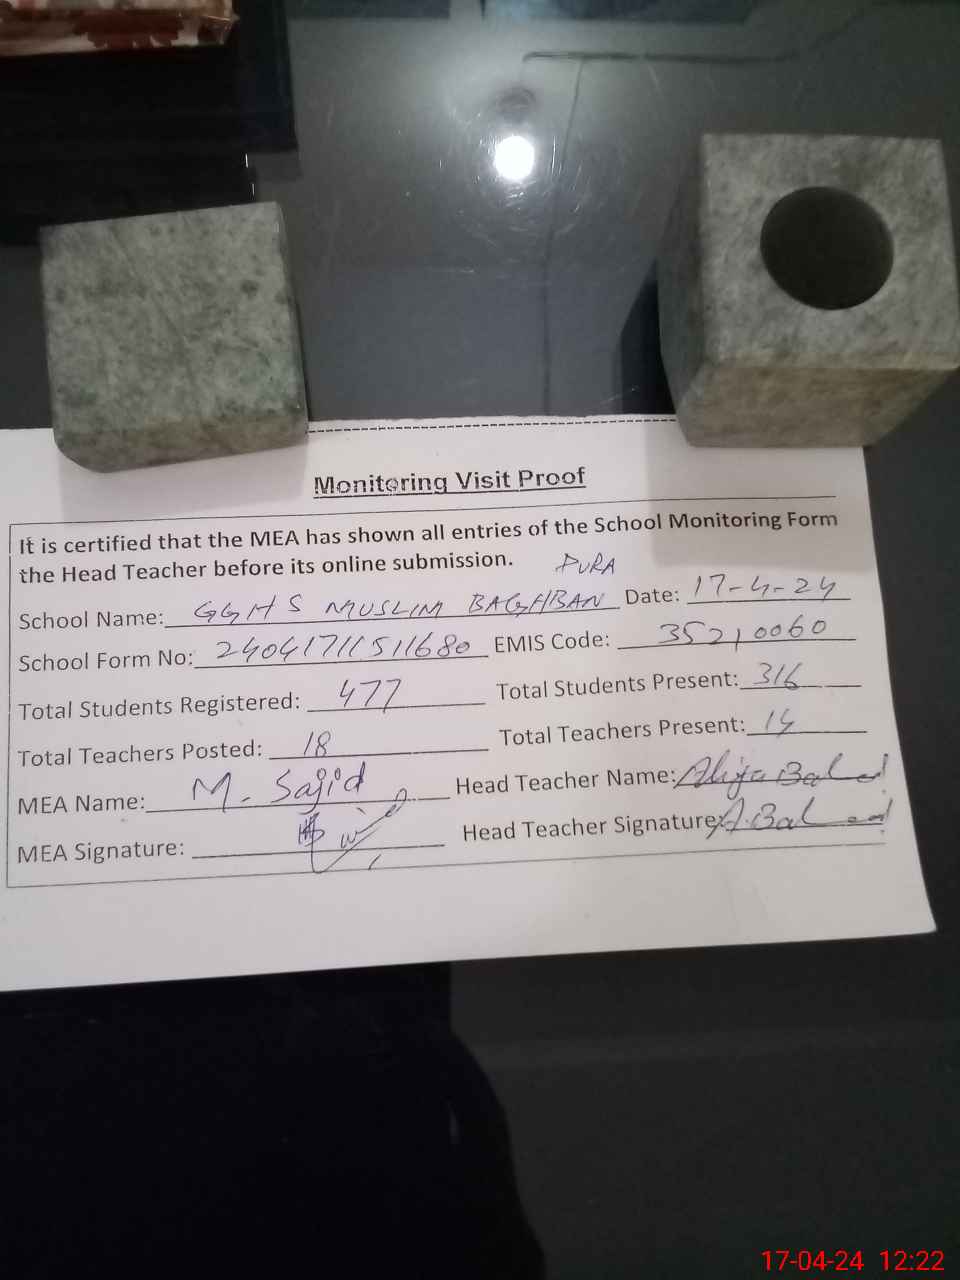 Monitoring Visit Proof
It is certified that the MEA has shown all entries of the School Monitoring Form
the Head Teacher before its online submission.
PURA
School Name: GGHS MUSLIM BAGHBAN Date: 17-4-24
School Form No: 24041711511680 EMIS Code: 35210060
Total Students Registered: 477 Total Students Present: 316
Total Teachers Posted: 18 Total Teachers Present: 14
MEA Name: M. Sajid Head Teacher Name:
MEA Signature: Head Teacher Signature:
17-04-24 12:22